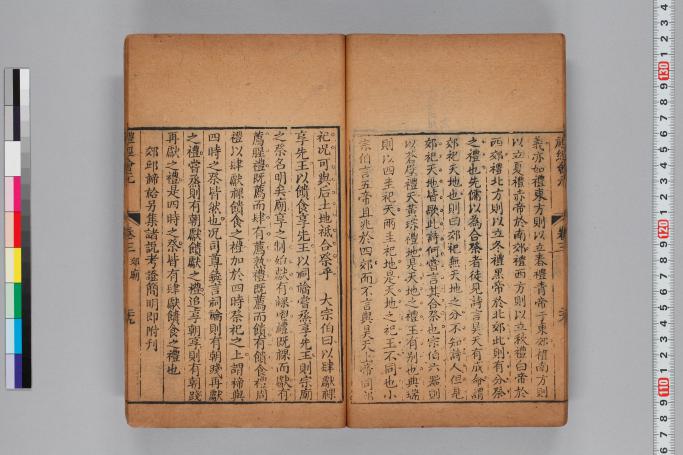 義亦如禮東方則以立春禮青帝于東郊禮南方則
以立夏禮赤帝於南郊禮西方則以立秋禮白帝於
西郊禮北方則以立冬禮黑帝於北郊此則有分祭
之禮也先儒以為合祭者徒見詩言昊天有成命謂
郊祀天地也則曰郊祀無天地之分不知詩人但是
郊祀天地皆歌此詩何嘗言其合祭也宗伯六器則
以蒼璧禮天黃琮禮地是天地之禮王有别也典瑞
則以四圭祀天兩圭祀地是天地之祀王不同也小
宗伯言五帝且兆於四郊而不言與昊天上帝同郊
卷三
祀况可與后土地祗合祭乎 大宗伯曰以肆獻祼
享先王以饋食享先王以祠禴嘗烝享先王則宗廟
之祭名明矣廟享之制始獻有祼禮既祼而獻有
薦腥禮既薦而肆有薦孰禮既薦而饋有饋食禮周
禮以肆獻祼饋食之禮加於四時祭祀之上謂禘與
四時之祭皆然也况司尊彝言祠禴則有朝踐再獻
之禮嘗烝則有朝獻饋獻之禮追享朝享則有朝踐
再獻之禮是四時之祭皆有肆獻饋食之禮也
郊丘禘祫另集諸說考證簡明即附刊
禮經會元
卷三
郊廟